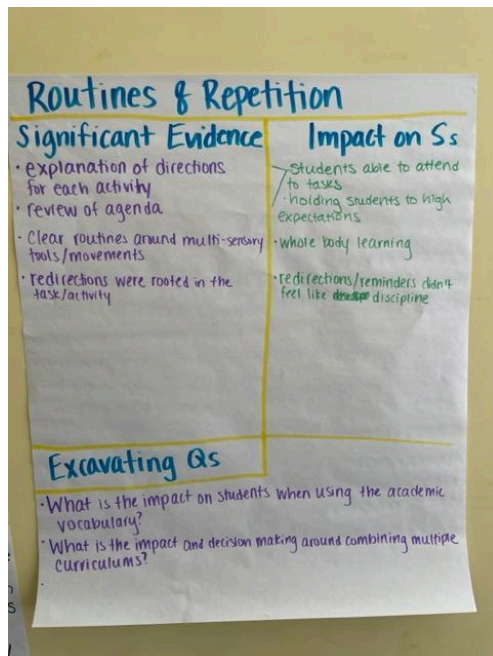 Routines & Repetition
Significant Evidence
• explanation of directions
for each activity
• review of agenda
• Clear routines around multi-sensory
tools/movements
• redirections were rooted in the
task/activity
Impact on Ss
Students able to attend
to tasks
• holding students to high
expectations
• whole body learning
• redirections/reminders didn't
feel like discipline
Excavating Qs
• What is the impact on students when using the academic
vocabulary?
• What is the impact and decision making around combining multiple
curriculums?
•